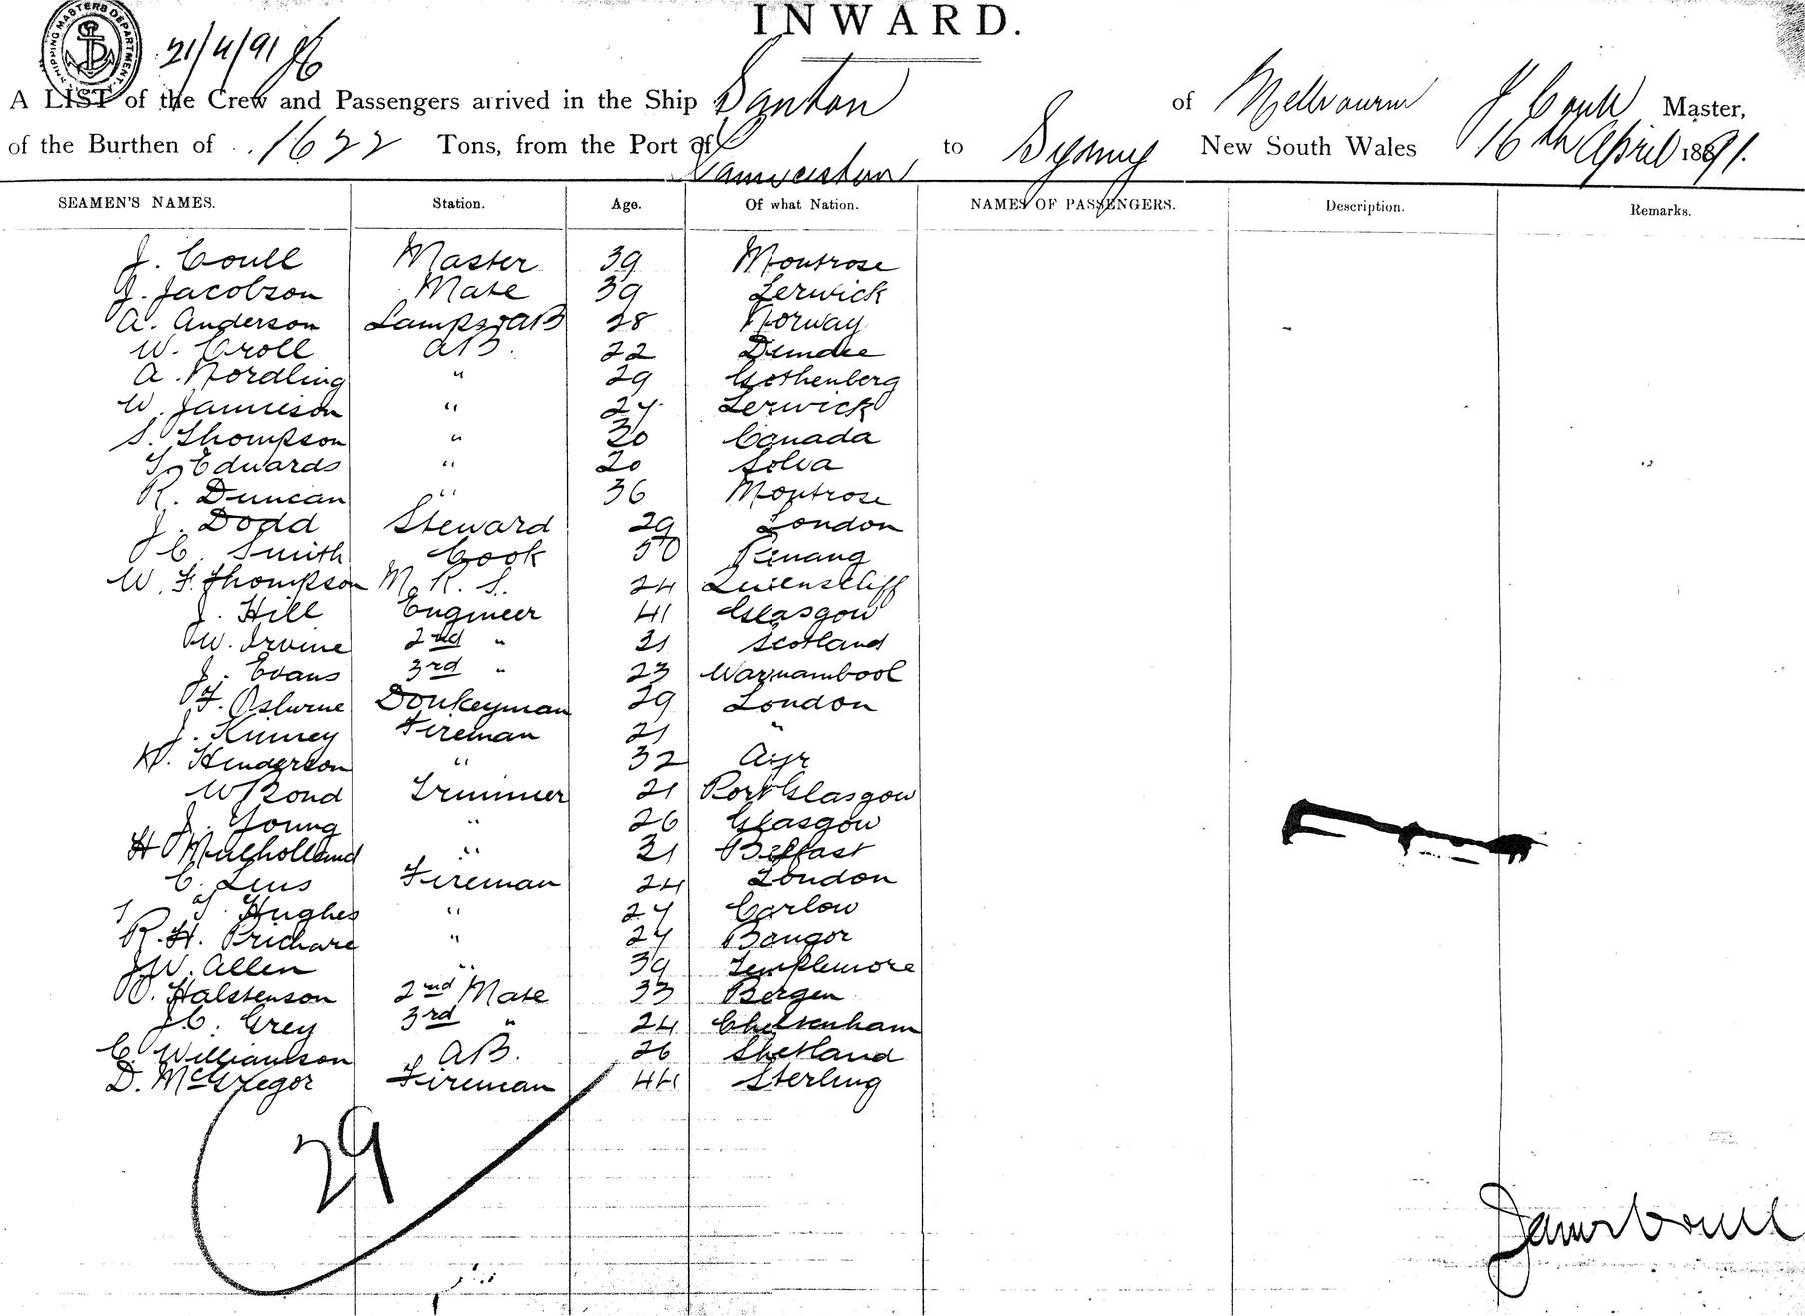 INWARD.
SHIPPING MASTERS DEPARTMENT
21/4/91
A LIST of the Crew and Passengers arrived in the Ship of Melbourne J Coull Master,
of the Burthen of 1622 Tons, from the Port of Launceston to Sydney New South Wales 16th April 1891.
SEAMEN'S NAMES. Station. Age. Of what Nation. NAMES OF PASSENGERS. Description. Remarks.
J. Coull Master 39 Montrose
J. Jacobson Mate 39 Lerwick
A. Anderson Lamps & AB 28 Norway
W. Croll AB. 22 Dundee
A. Nordling " 29 Gothenberg
W. Jamieson " 27 Lerwick
S. Thompson " 30 Canada
T. Edwards " 20 Solva
R. Duncan " 36 Montrose
J. Dodd Steward 29 London
C. Smith Cook 50 Penang
W. F. Thompson M. R. S. 24 Queenscliff
J. Hill Engineer 41 Glasgow
W. Irvine 2nd " 31 Scotland
J. Evans 3rd " 23 Warnambool
F. Osburne Donkeyman 29 London
J. Kinney Fireman 21 "
H. Henderson " 32 Ayr
W Bond Trimmer 21 Port Glasgow
J. Young " 26 Glasgow
H Mulholland " 31 Belfast
C. Fireman 24 London
T. Hughes " 27 Carlow
R. H. Prichard " 27 Bangor
J. W. Allen " 39 Templemore
O. Halstenson 2nd Mate 33 Bergen
J. C. Grey 3rd " 24 Cheltenham
C. Williamson AB. 26 Shetland
D. McGregor Fireman 44 Sterling
29
James Coull